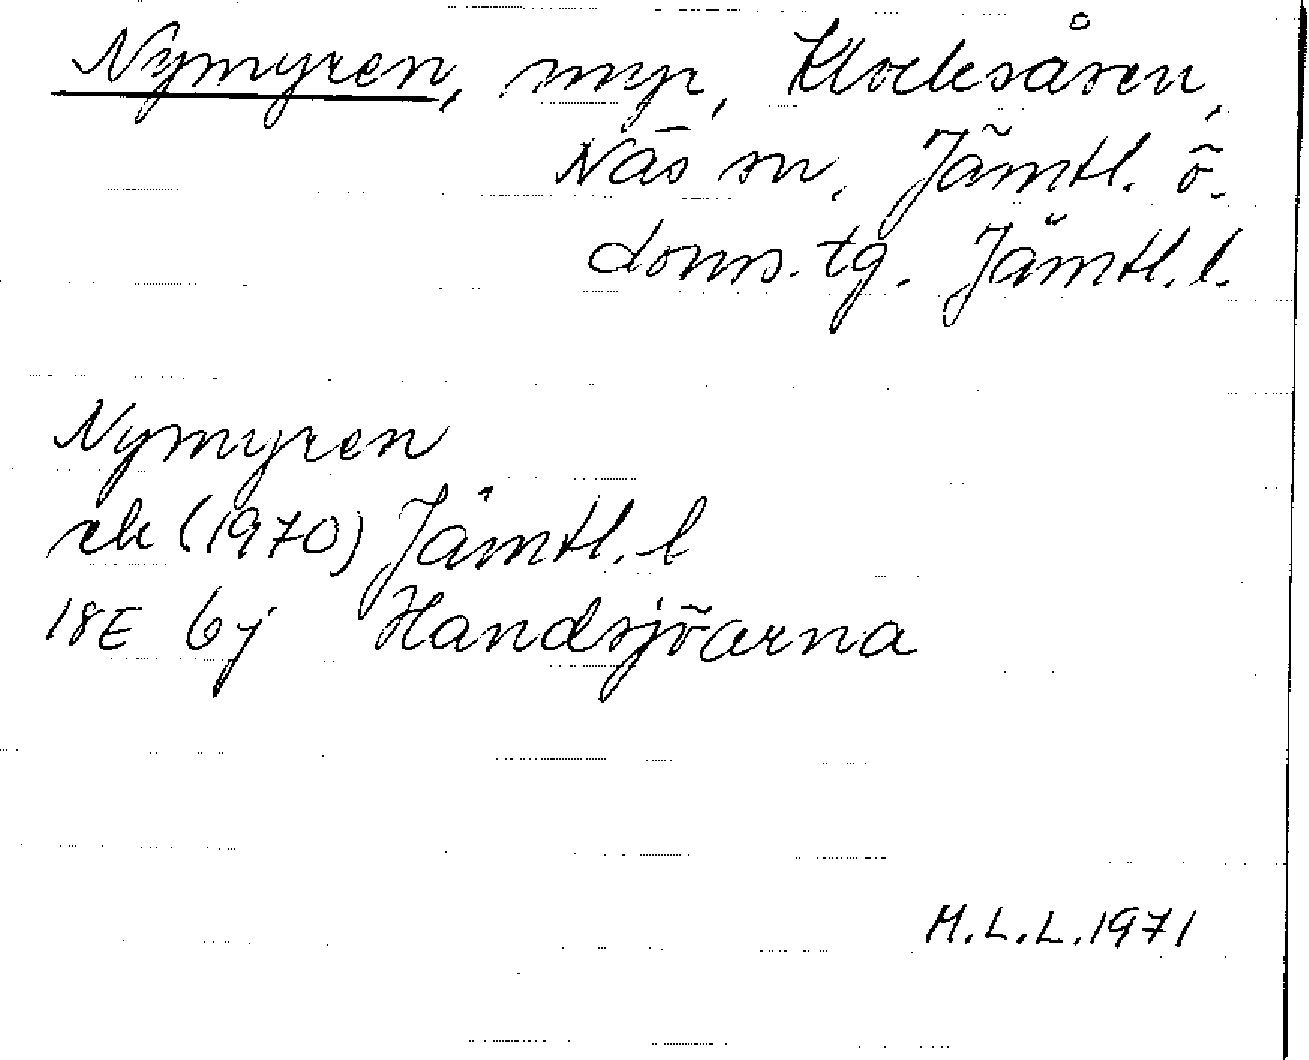 Nymyren, myr, Klocksåsen,
Näs sn, Jämtl. ö.
doms. tg. Jämtl. l.
Nymyren
ek (1970) Jämtl. l
18E 6j Handsjöarna
M.L.L. 1971